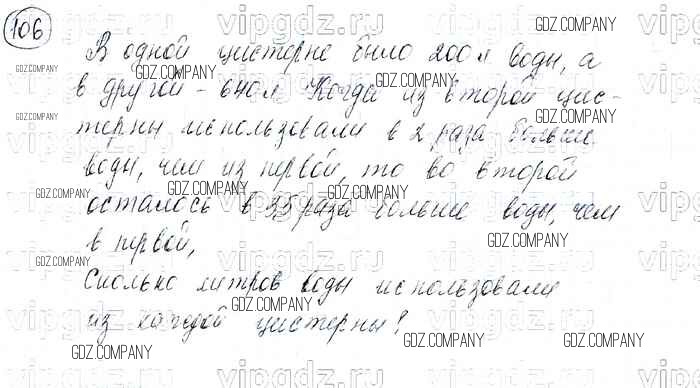 106
В одной цистерне было 200 л воды, а
в другой - 640 л. Когда из второй цис-
терны использовали в 2 раза больше
воды, чем из первой, то во второй
осталось в 3,5 раза больше воды, чем
в первой,
Сколько литров воды использовали
из каждой цистерны?
GDZ.COMPANY
vipgdz.ru